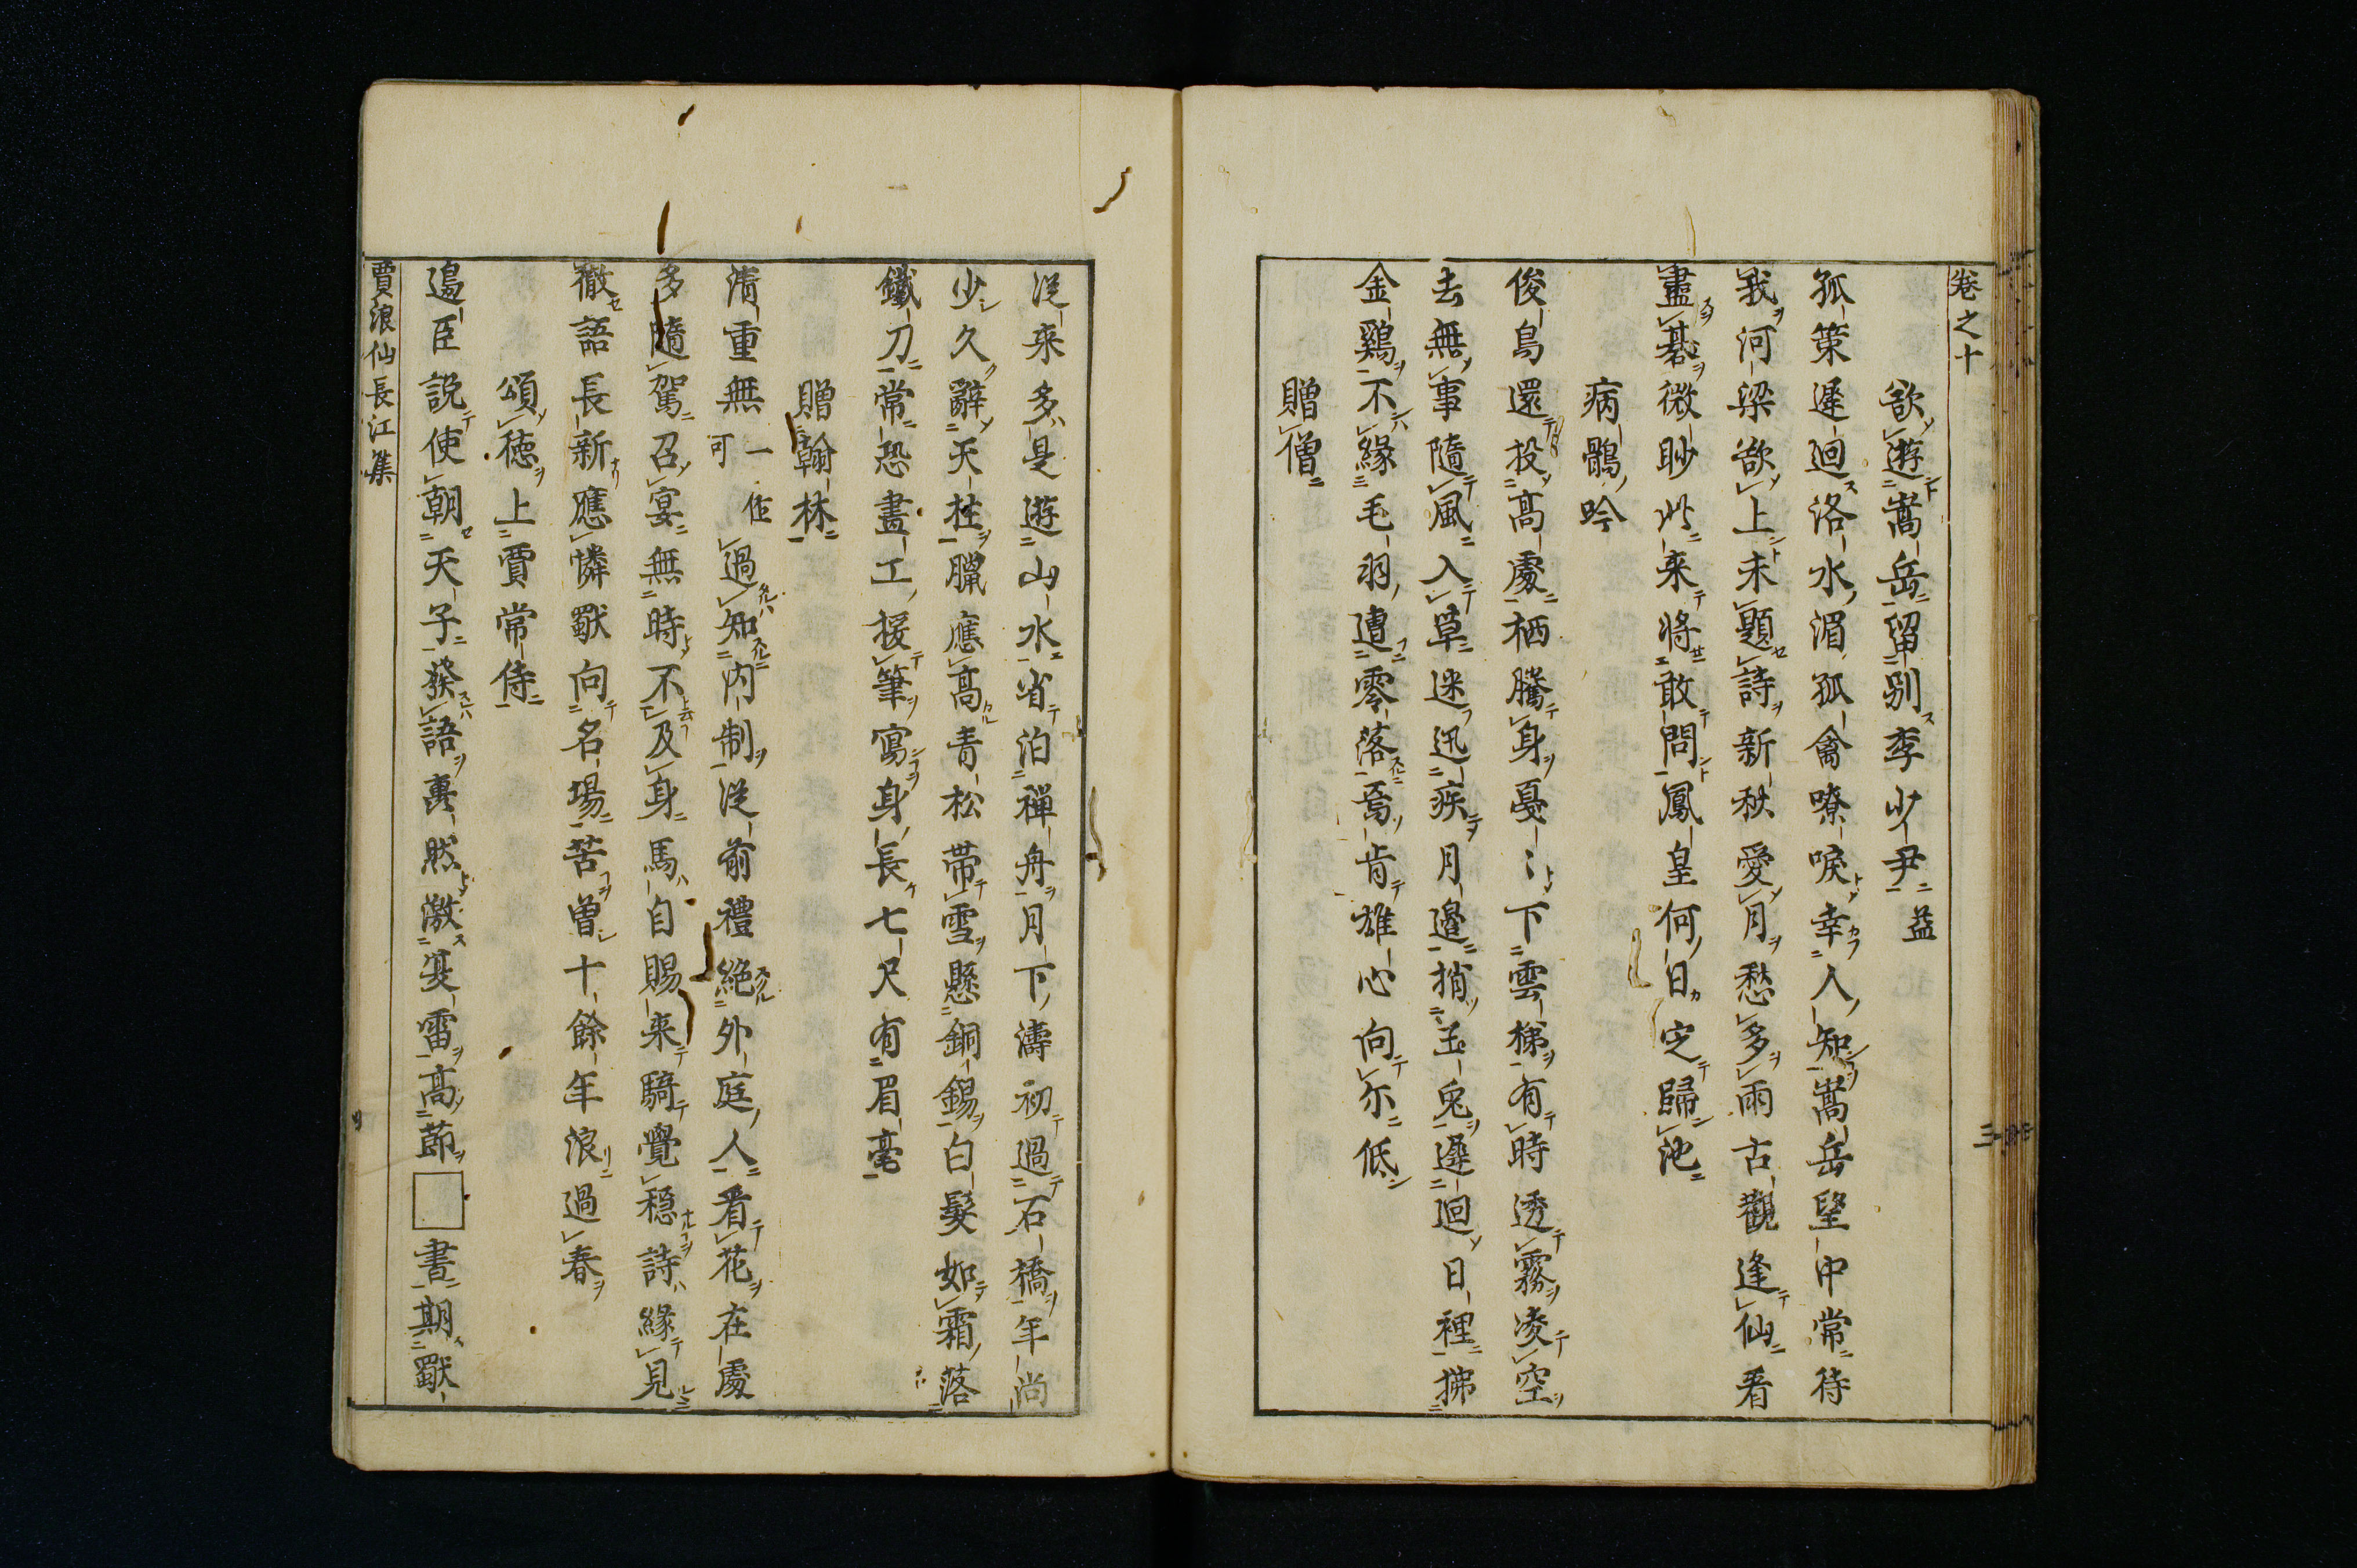 卷之十
三
欲遊嵩岳留別李少尹益
孤策遲迴洛水湄孤禽嘹唳幸人知嵩岳望中常待
我河梁欲上未題詩新秋愛月愁多雨古觀逢仙看
盡碁微眇此来將敢問鳳皇何日定歸池
病鶻吟
俊鳥還投高處栖騰身戛〻下雲梯有時透霧凌空
去無事隨風入草迷迅疾月邊捎玉兔遲迴日裡拂
金鷄不緣毛羽遭零落焉肯雄心向尓低
贈僧
從来多是遊山水省泊禪舟月下濤初過石橋年尚
少久辭天柱臘應高青松帶雪懸銅錫白髮如霜落
鐵刀常恐畫工援筆寫身長七尺有眉毫
贈翰林
清重無一作可過知内制從前禮絶外庭人看花在處
多隨駕召宴無時不及身馬自賜来騎覺穩詩緣見
徹語長新應憐獻向名場苦曽十餘年浪過春
頌徳上賈常侍
邉臣説使朝天子發語轟然激夏雷高節□書期獨
賈浪仙長江集